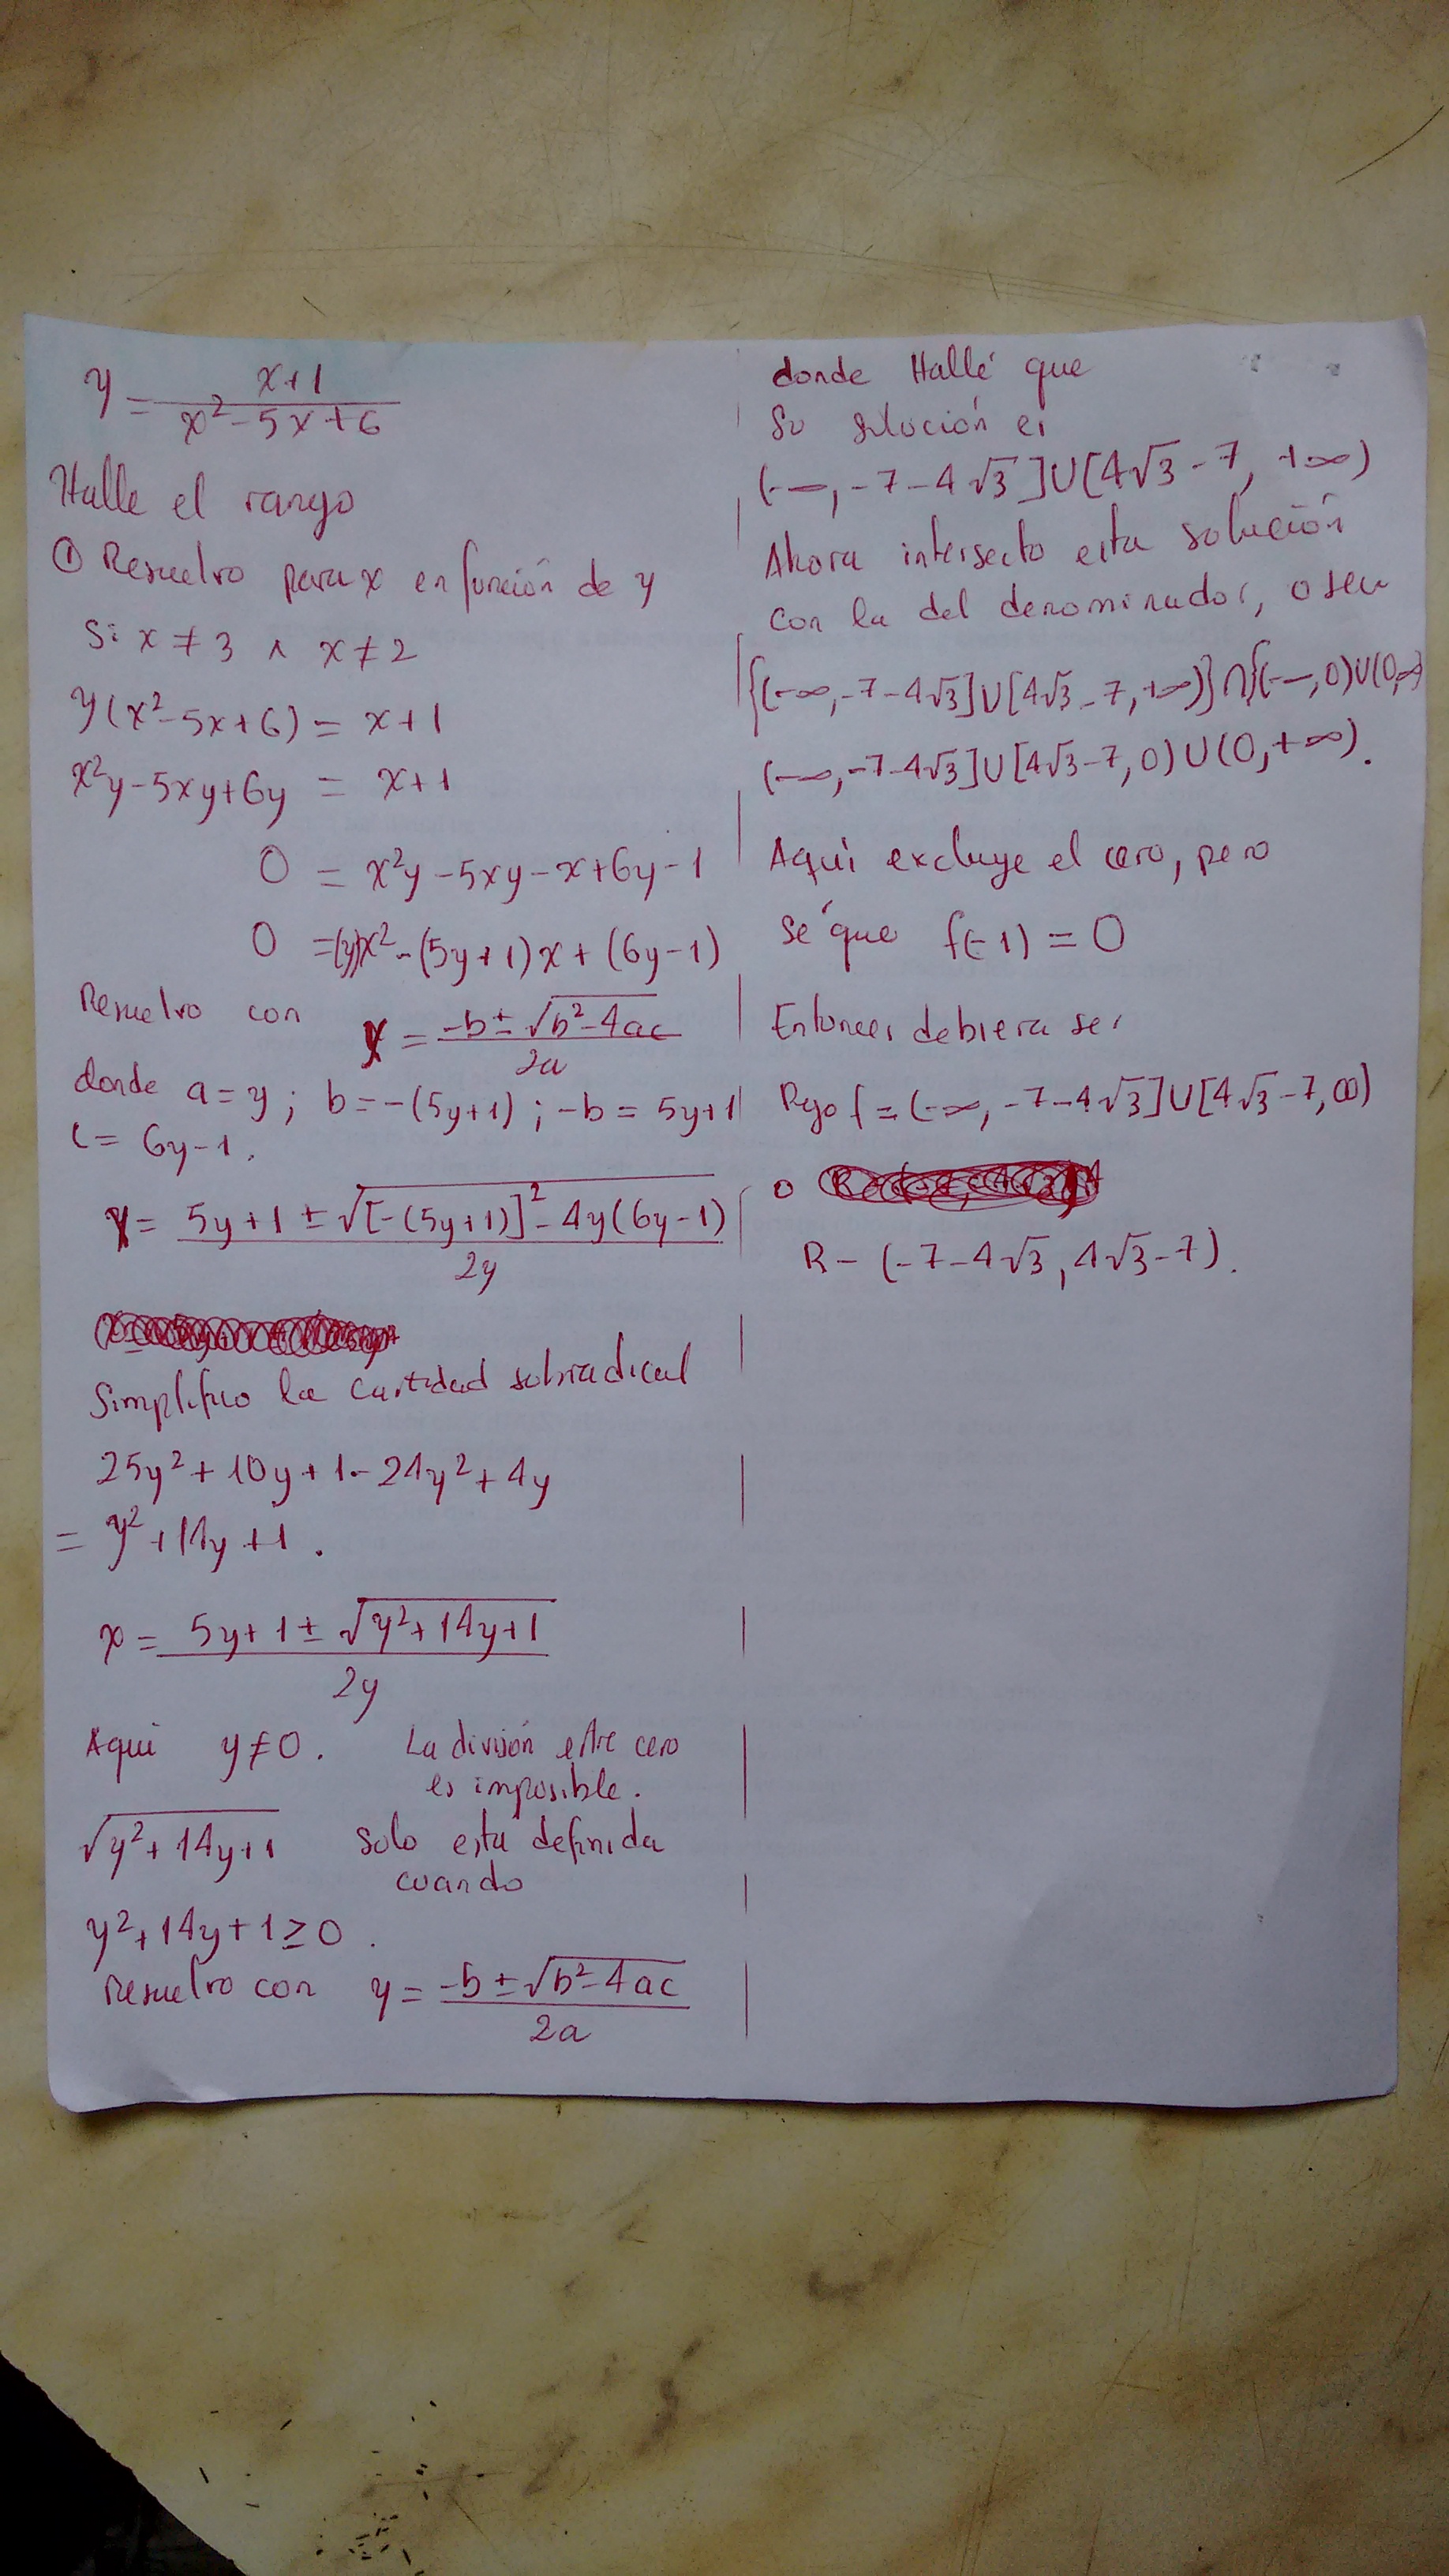 y = x+1 / x²-5x+6
Halle el rango
① Resuelvo para x en función de y
Si x ≠ 3 ∧ x ≠ 2
y(x²-5x+6) = x+1
x²y-5xy+6y = x+1
0 = x²y-5xy-x+6y-1
0 =(y)x²-(5y+1)x+(6y-1)
Resuelvo con x = -b±√b²-4ac / 2a
donde a=y; b=-(5y+1); -b=5y+1
c= 6y-1.
x= 5y+1±√[-(5y+1)]²-4y(6y-1) / 2y
Simplifico la cantidad subradical
25y²+10y+1-24y²+4y
= y²+14y+1.
x= 5y+1±√y²+14y+1 / 2y
Aqui y≠0. La división entre cero
es imposible.
√y²+14y+1 Solo esta definida
cuando
y²+14y+1≥0.
Resuelvo con y= -b±√b²-4ac / 2a
donde Hallé que
Su solución es
(-∞,-7-4√3]U[4√3-7, +∞)
Ahora intersecto esta solución
con la del denominador, o sea
{(-∞,-7-4√3]U[4√3-7,+∞)}∩{(-∞,0)U(0,∞)
(-∞,-7-4√3]U[4√3-7,0)U(0,+∞).
Aqui excluye el cero, pero
sé que f(-1) = 0
Entonces debiera ser
Rgo f = (-∞,-7-4√3]U[4√3-7,∞)
o
R-(-7-4√3,4√3-7).